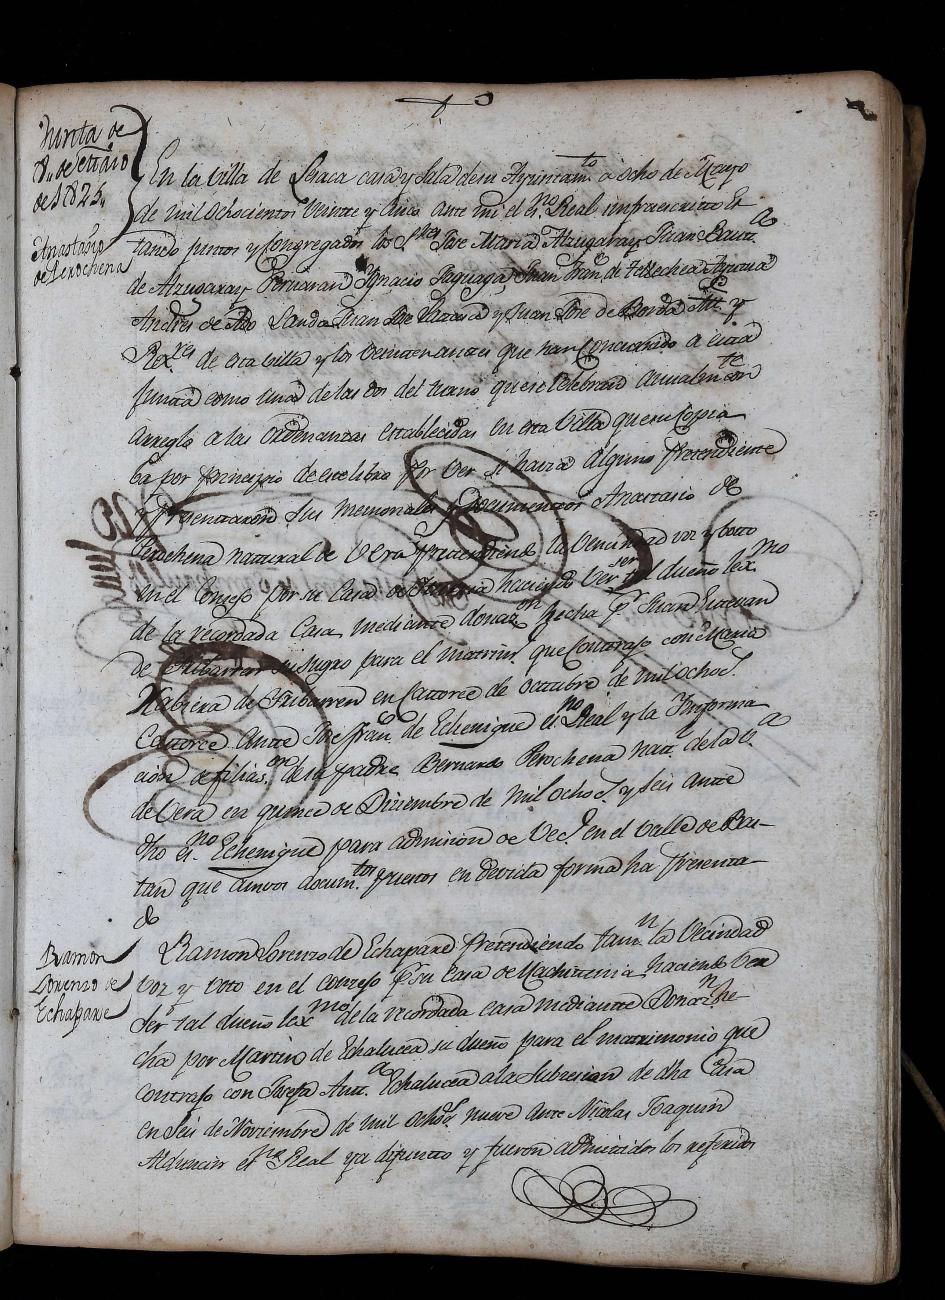 Junta de
8,, de Maio
de 1825,
Anastasio
de Perochena
En la Villa de Lesaca casa y Sala de su Ayuntam.to a ocho de Mayo
de mil Ochocientos Veinte y Cinco ante mi el es.no Real infraescrito Es
tando juntos y Congregados los S.res Jose Maria Alzugaray Juan Baut.a
de Alzugaray Ignacio Juan Fran.co de Tellechea
Andres de Landa Juan Jose y Juan Jose de Borda Alc.de y
Rex.res de esta Villa y los Veintenantes que han Concurrido a esta
Junta como una de las dos del tiano que se Celebran Anualm.te con
arreglo a las Ordenanzas establecidas en esta Villa que su Copia
ba por principio de este libro por Ver si havia Alguno Pretendiente
y Presentaron sus Memoriales y Documentos Anastasio de
Perochena natural de Vera pretendiendo la Vecindad voz y boto
en el Consejo por su Casa de haciendo Ver ser tal dueño lex.mo
de la recordada Casa, mediante donaz.on hecha p.r Juan Estevan
de Iribarren su Sugro para el matrim.o que Contrajo con Maria
Xabiera de Iribarren en Catorce de Octubre de mil ochos.s
Catorce Ante Jose Fran.co de Echenique es.no Real y la Informa
cion de filias.on de su padre Bernardo Perochena nat.l de la V.a
de Vera en quince de Diciembre de mil Ochos.s y seis ante
dho es.no Echenique para admision de Vec.o en el Valle de Bas-
tan que ambos docum.tos puestos en devida forma ha Presenta-
do
Ramon
Lorenzo de
Echapare
Ramon Lorenzo de Echapare Pretendiendo tam.n la Vecindad
voz y voto en el consejo p.r su Casa de Machitenia haciendo Ver
Ser tal dueño lex.mo de la recordada casa mediante Donaz.n he-
cha por Martin de Echalucea su dueño para el matrimonio que
contrajo con Josefa Ant.a Echalucea a la Subcesion de dha Casa
en Seis de Noviembre de mil ochos.s nueve ante Nicolas Joaquin
Alduncin es.no Real ya difunto y fueron admitidos los referidos